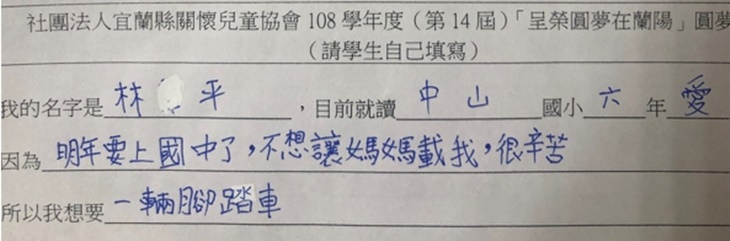 社團法人宜蘭縣關懷兒童協會 108 學年度（第 14 屆）「呈榮圓夢在蘭陽」圓夢
（請學生自己填寫）
我的名字是 林 平 ，目前就讀 中山 國小 六 年 愛
因為 明年要上國中了，不想讓媽媽載我，很辛苦
所以我想要 一輛腳踏車